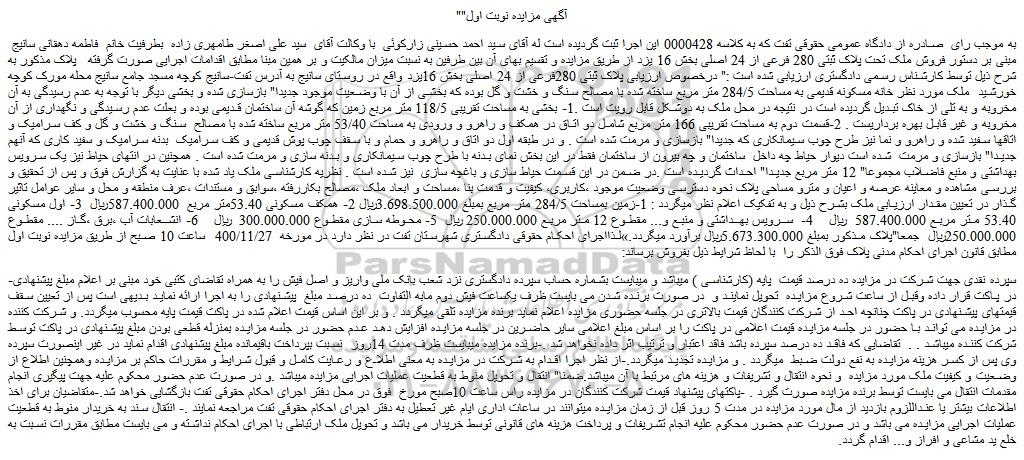 آگهی مزایده نوبت اول""
به موجب رای صـادره از دادگاه عمومی حقوقی تفت که به کلاسه 0000428 این اجرا ثبت گردیده است له آقای سید احمد حسینی زارکوئی با وکالت آقای سید علی اصغر طامهری زاده بطرفیت خانم فاطمه دهقانی سانیج
مبنی بر دستور فروش ملک تحت پلاک ثبتی 280 فرعی از 24 اصلی بخش 16 یزد از طریق مزایده و تقسیم بهای آن بین طرفین به نسبت میزان مالکیت و بر همین مبنا مطابق اقدامات اجرایی صورت گرفته پلاک مذکور به
شرح ذیل توسط کارشناس رسمی دادگستری ارزیابی شده است :" درخصوص ارزیابی پلاک ثبتی 280فرعی از 24 اصلی بخش 16یزد واقع در روستای سانیج به آدرس تفت-سانیج کوچه مسجد جامع سانیج محله مورک کوچه
خورشید ملک مورد نظر خانه مسکونه قدیمی به مساحت 284/5 متر مربع ساخته شده با مصالح سنگ و خشت و گل بوده که بخشی از آن با وضعیت موجود جدیدا" بازسازی شده و بخشی دیگر با توجه به عدم رسیدگی به آن
مخروبه و به تلی از خاک تبدیل گردیده است در نتیجه در محل ملک به دوشکل قابل رویت است .1- بخشی به مساحت تقریبی 118/5 متر مربع زمین که گوشه آن ساختمان قدیمی بوده و بعلت عدم رسیدگی و نگهداری از آن
مخروبه و غیر قابل بهره برداریست . 2-قسمت دوم به مساحت تقریبی 166 متر مربع شامل دو اتاق در همکف و راهرو و ورودی به مساحت 53/40 متر مربع ساخته شده با مصالح سنگ و خشت و گل و کف سرامیک و
اتاقها سفید شده و راهرو و نما نیز طرح چوب سیمانکاری که جدیدا" بازسازی و مرمت شده است . و در طبقه اول دو اتاق و راهرو و حمام و با سقف چوب پوش قدیمی و کف سرامیک بدنه سرامیک و سفید کاری که آنهم
جدیدا" بازسازی و مرمت شده است دیوار حیاط چه داخل ساختمان و چه بیرون از ساختمان فقط در این بخش نمای بدنه با طرح چوب سیمانکاری و بدنه سازی و مرمت شده است . همچنین در انتهای حیاط نیز یک سرویس
بهداشتی و منبع فاضلاب مجموعا" 12 متر مربع جدیدا" احداث گردیده است .در ضمن در این قسمت حیاط سازی و باغیچه سازی نیز شده است . نظریه کارشناسی ملک یاد شده با عنایت به گزارش فوق و پس از تحقیق و
بررسی مشاهده و معاینه عرصه و اعیان و مترو مساحی پلاک نحوه دسترسی وضعیت موجود ،کاربری، کیفیت و قدمت بنا ،مساحت و ابعاد ملک ،مصالح بکاررفته ،سوابق و مستندات ،عرف منطقه و محل و سایر عوامل تاثیر
گذار در تعیین مقدار ارزیابی ملک بشرح ذیل و به تفکیک اعلام نظر میگردد : 1-زمین بمساحت 284/5 متر مربع بمبلغ 3.698.500.000ریال 2- همکف مسکونی 53.40متر مربع 587.400.000ریال 3- اول مسکونی
53.40 متر مربع 587.400.000 ریال 4- سرویس بهداشتی و منبع و... مقطوع 12 متر مربع 250.000.000 ریال 5- محوطه سازی مقطوع 300.000.000 ریال 6- انشعابات آب ،برق ،گاز .... مقطوع
250.000.000ریال جمعا"پلاک مذکور بمبلغ 5.673.300.000ریال برآورد میگردد.»لذااجرای احکام حقوقی دادگستری شهرستان تفت در نظر دارد در مورخه 400/11/27 ساعت 10 صبح از طریق مزایده نوبت اول
مطابق قانون اجرای احکام مدنی پلاک فوق الذکر را با لحاظ شرایط ذیل بفروش برساند:
سپرده نقدی جهت شرکت در مزایده ده درصد قیمت پایه (کارشناسی ) میباشد و میبایست بشماره حساب سپرده دادگستری نزد شعب بانک ملی واریز و اصل فیش را به همراه تقاضای کتبی خود مبنی بر اعلام مبلغ پیشنهادی-
در پاکت قرار داده وقبل از ساعت شروع مزایده تحویل نمایند و در صورت برنده شدن می بایست ظرف یکساعت فیش دوم مابه التفاوت ده درصد مبلغ پیشنهادی را به اجرا ارائه نماید بدیهی است پس از تعیین سقف
قیمتهای پیشنهادی در پاکت چنانچه احد از شرکت کنندگان قیمت بالاتری در جلسه حضوری مزایده اعلام نماید برنده مزایده تلقی میگردد . و بر این اساس قیمت اعلام شده در پاکت قیمت پایه محسوب میگردد. و شرکت کننده
در مزایده می تواند با حضور در جلسه مزایده قیمت اعلامی در پاکت را بر اساس مبلغ اعلامی سایر حاضرین در جلسه مزایده افزایش دهد عدم حضور در جلسه مزایده بمنزله قطعی بودن مبلغ پیشنهادی در پاکت توسط
شرکت کننده میباشد . . تقاضایی که فاقد ده درصد سپرده باشد فاقد اعتبار و ترتیب اثر داده نخواهد شد .-برنده مزایده میبایست ظرف مدت 14روز نسبت پرداخت باقیمانده مبلغ پیشنهادی اقدام نماید در غیر اینصورت سپرده
وی پس از کسر هزینه مزایده به نفع دولت ضبط میگردد . و مزایده تجدید میگردد .-از نظر اجرا اقدام به شرکت در مزایده به معنی اطلاع و رعایت کامل و قبول شرایط و مقررات حاکم بر مزایده وهمچنین اطلاع از
وضعیت و کیفیت ملک مورد مزایده و نحوه انتقال و تشریفات و هزینه های مرتبط با آن میباشد.ضمنا" انتقال و تحویل منوط به قطعیت عملیات اجرایی مزایده میباشد .و در صورت عدم حضور محکوم علیه جهت پیگیری انجام
مقدمات انتقال می بایست توسط برنده مزایده صورت گیرد . -پاکتهای پیشنهاد قیمت شرکت کنندگان در مزایده راس ساعت 10صبح مورخ فوق در محل دفتر اجرای احکام حقوقی تفت بازگشایی خواهد شد.-متقاضیان برای اخذ
اطلاعات بیشتر یا عنداللزوم بازدید از مال مورد مزایده در مدت 5 روز قبل از زمان مزایده میتوانند در ساعات اداری ایام غیر تعطیل به دفتر اجرای احکام حقوقی تفت مراجعه نمایند .- انتقال سند به خریدار منوط به قطعیت
عملیات اجرایی مزایده می باشد و در صورت عدم حضور محکوم علیه انجام تشریفات و پرداخت هزینه های قانونی توسط خریدار می باشد و تحویل ملک ارتباطی با اجرای احکام نداشته و می بایست مطابق مقررات نسبت به
خلع ید مشاعی و افراز و... اقدام گردد.
ParsNamadData
۰۲۱-۸۸۳۴۹۶۷۰-۵